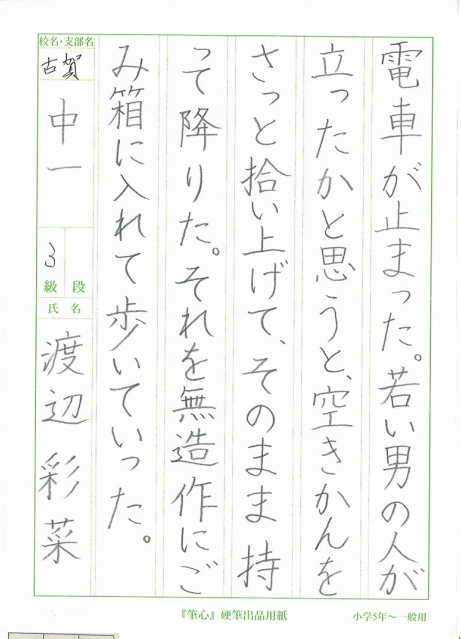 電車が止まった。若い男の人が
立ったかと思うと、空きかんを
さっと拾い上げて、そのまま持
って降りた。それを無造作にご
み箱に入れて歩いていった。
校名・支部名
古賀
中一
3
級 段
氏 名
渡辺 彩菜
『筆心』硬筆出品用紙
小学5年〜一般用